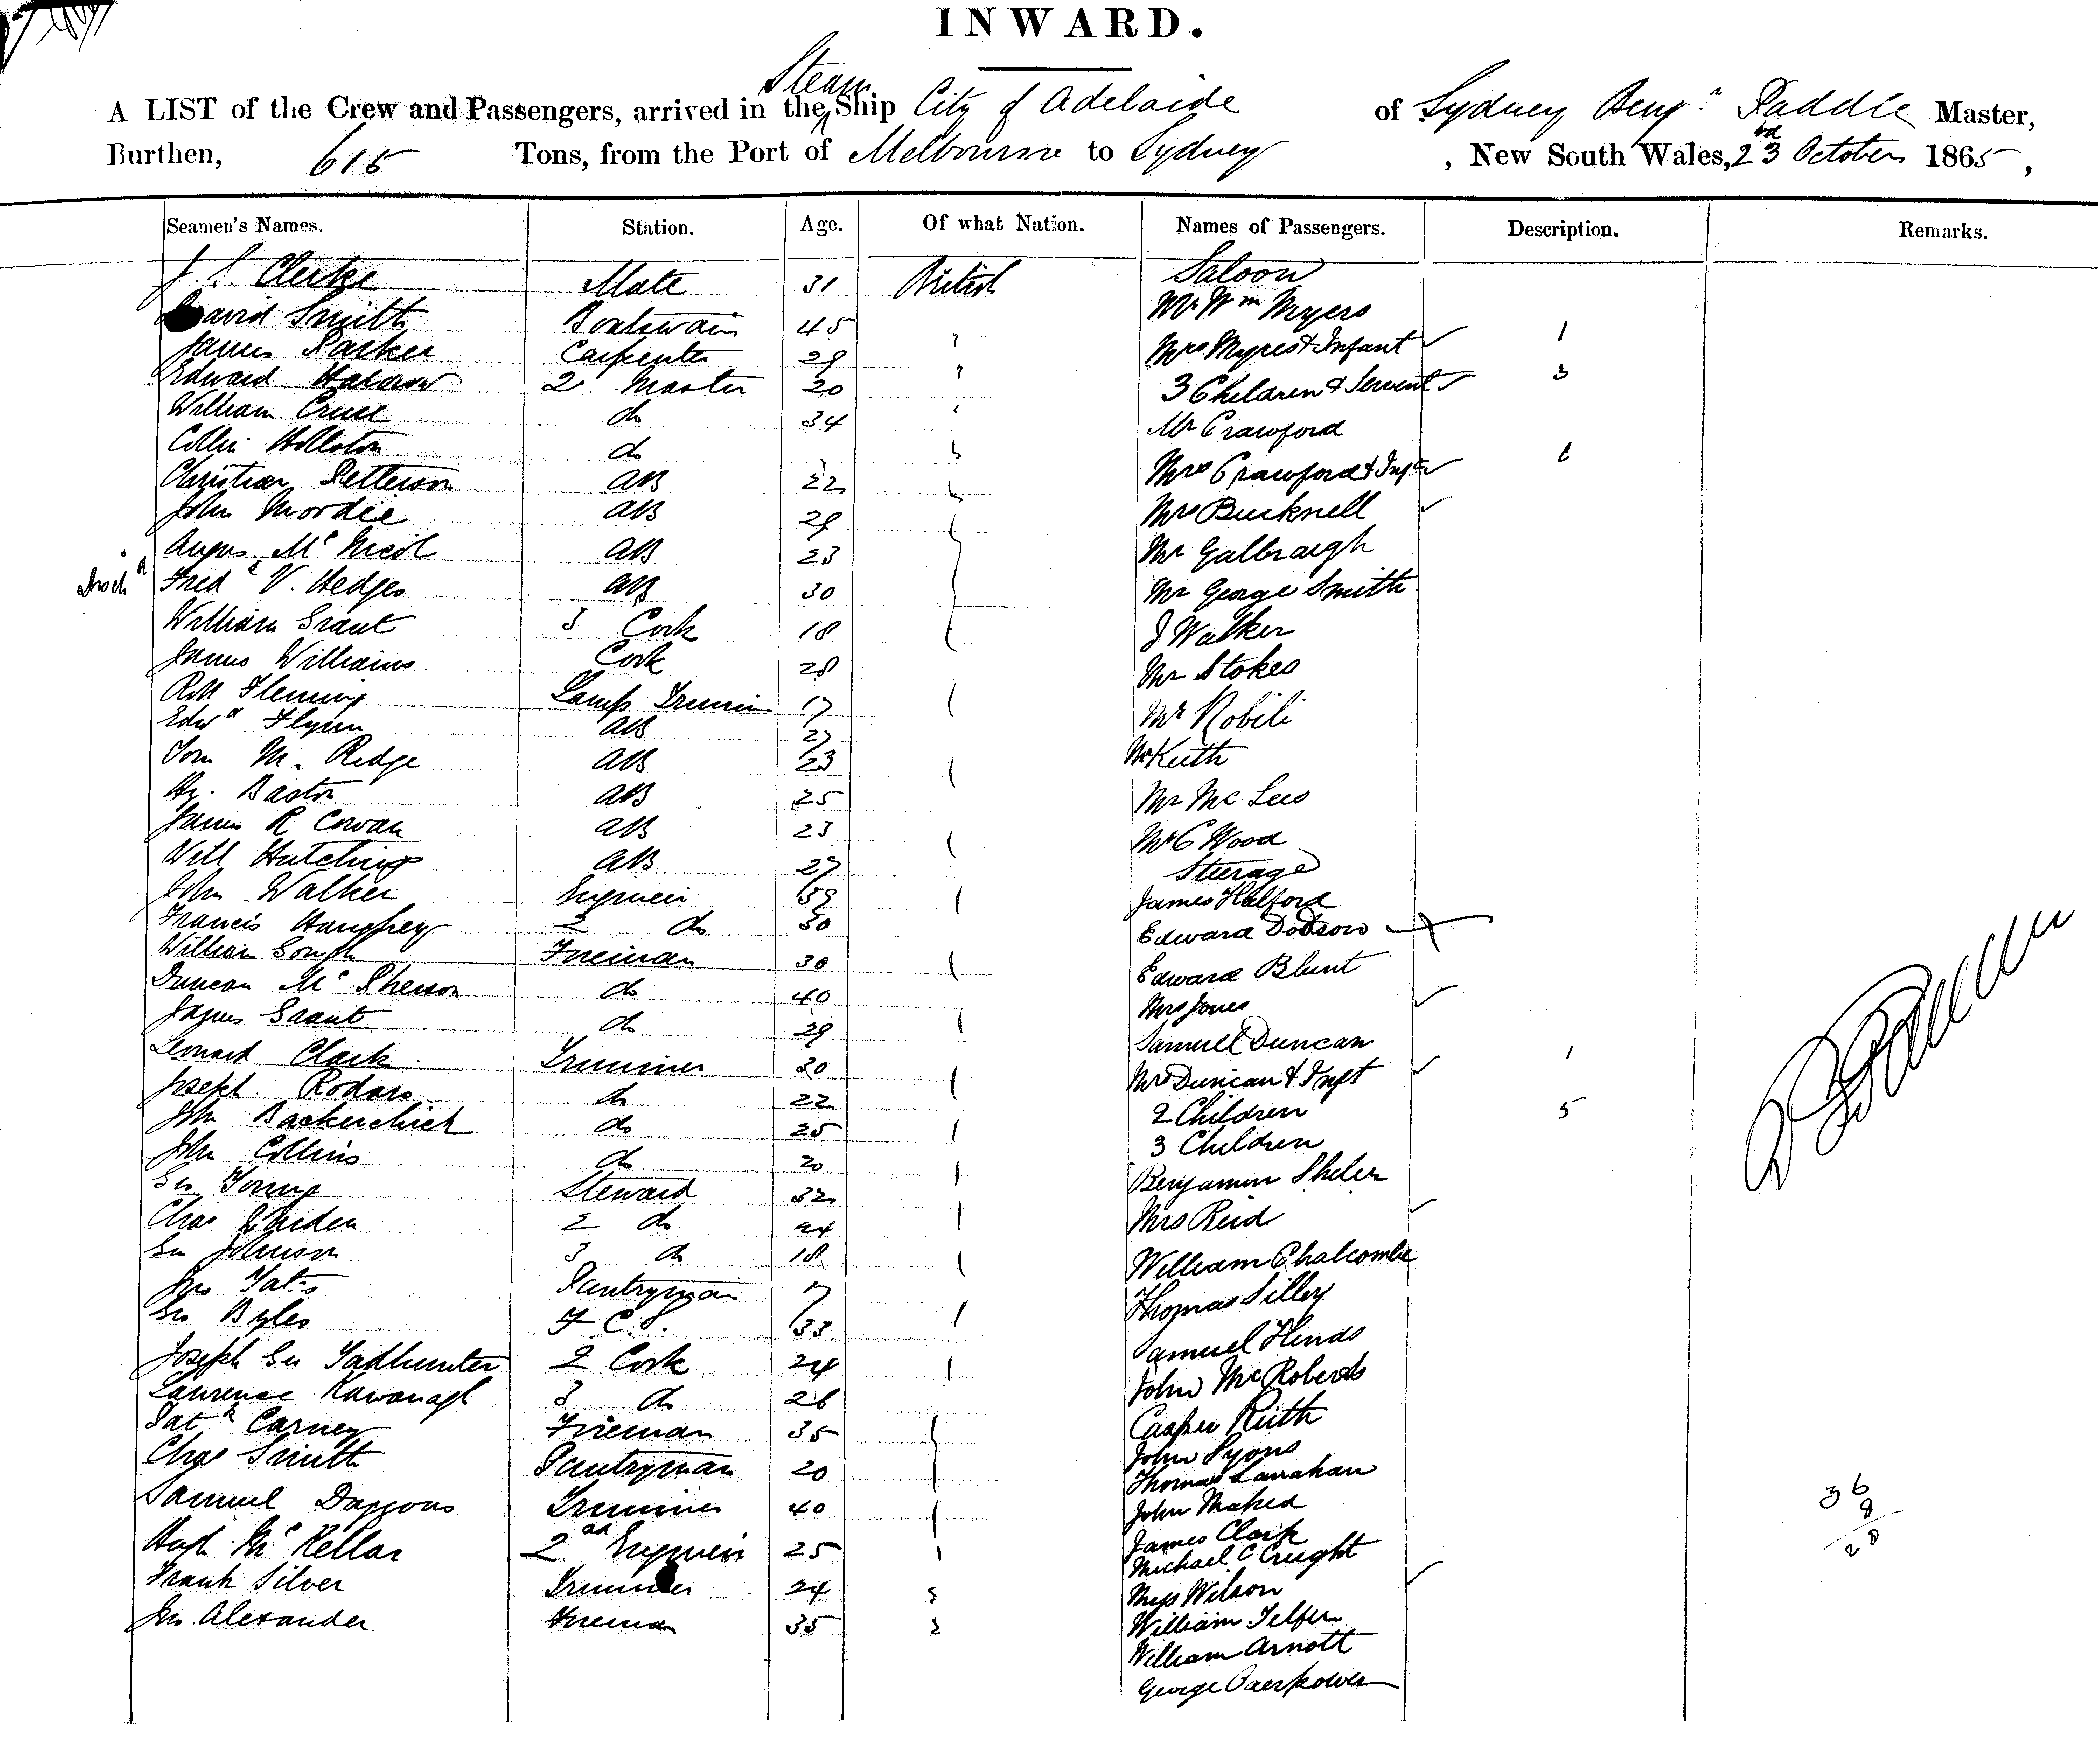 INWARD.
Steam
A LIST of the Crew and Passengers, arrived in the Ship City of Adelaide of Sydney Benjn Paddle Master,
Burthen, 615 Tons, from the Port of Melbourne to Sydney , New South Wales, 23rd October 1865,
Seamen's Names. Station. Age. Of what Nation. Names of Passengers. Description. Remarks.
Saloon
J S Clerke Mate 31 British
Mr Wm Myers
David Smith Boatswain 45
James Parker Carpenter 29 Mrs Myres & Infant 1
Edward 2 Master 20 3 Children & Servent 3
William do 34 Mr Crawford
Collin do
Christian Petterson AB 22 Mrs Crawford & Inft
John Mordie AB 29 Mrs Bucknell
Angus McNicol AB 23 Mr Galbraigh
Fredk V. Hedges AB 30 Mr George Smith
William Grant 3 Cook 18 J Walker
James Williams Cook 28 Mr Stokes
Robt Fleming Lamp 17 Mr Robili
Edwd Flynn AB 27
Tom M. Ridge AB 23 Mr Keith
Hy. Baston AB 25 Mr Mc Lees
James R Cowan AB 23 Mr C Wood
Will Hutchings AB 27 Steerage
John Walker Engineer 53 James Halford
Francis Humphrey 2 do 30 Edward Dobson
William Gough Fireman 30 Edward Blunt
Duncan McPherson do 40 Mrs Jones
James Grant do 29 Samuel Duncan
Leonard Clark Trimmer 30 Mrs Duncan & Inft 1
Joseph Rodars do 22 2 Children 5
John do 25 3 Children
John Collins do 20 Benjamin
Geo Young Steward 32 Mrs Reid
Chas 2 do 24 William Chalcombe
Geo Johnson 3 do 18
Jno Yates Pantryman 17 Thomas Silley
Geo Byles F. C. S. 33 Samuel Hinds
Joseph Geo Tadhunter 2 Cook 24 John McRoberts
Laurence Kavanagh 3 do 26 Casper Rüth
Patk Carney Fireman 35 John Lyons
Chas Smith Pantryman 20 Thomas Lanahan
Samuel Trimmer 40 John
Hugh McKellar 2nd Engineer 25 James Clark
Michael C Creight
Frank Silver Trimmer 24 Miss Wilson
Jno. Alexander Fireman 35 William Telfer
William Arnott
George
36
8
28